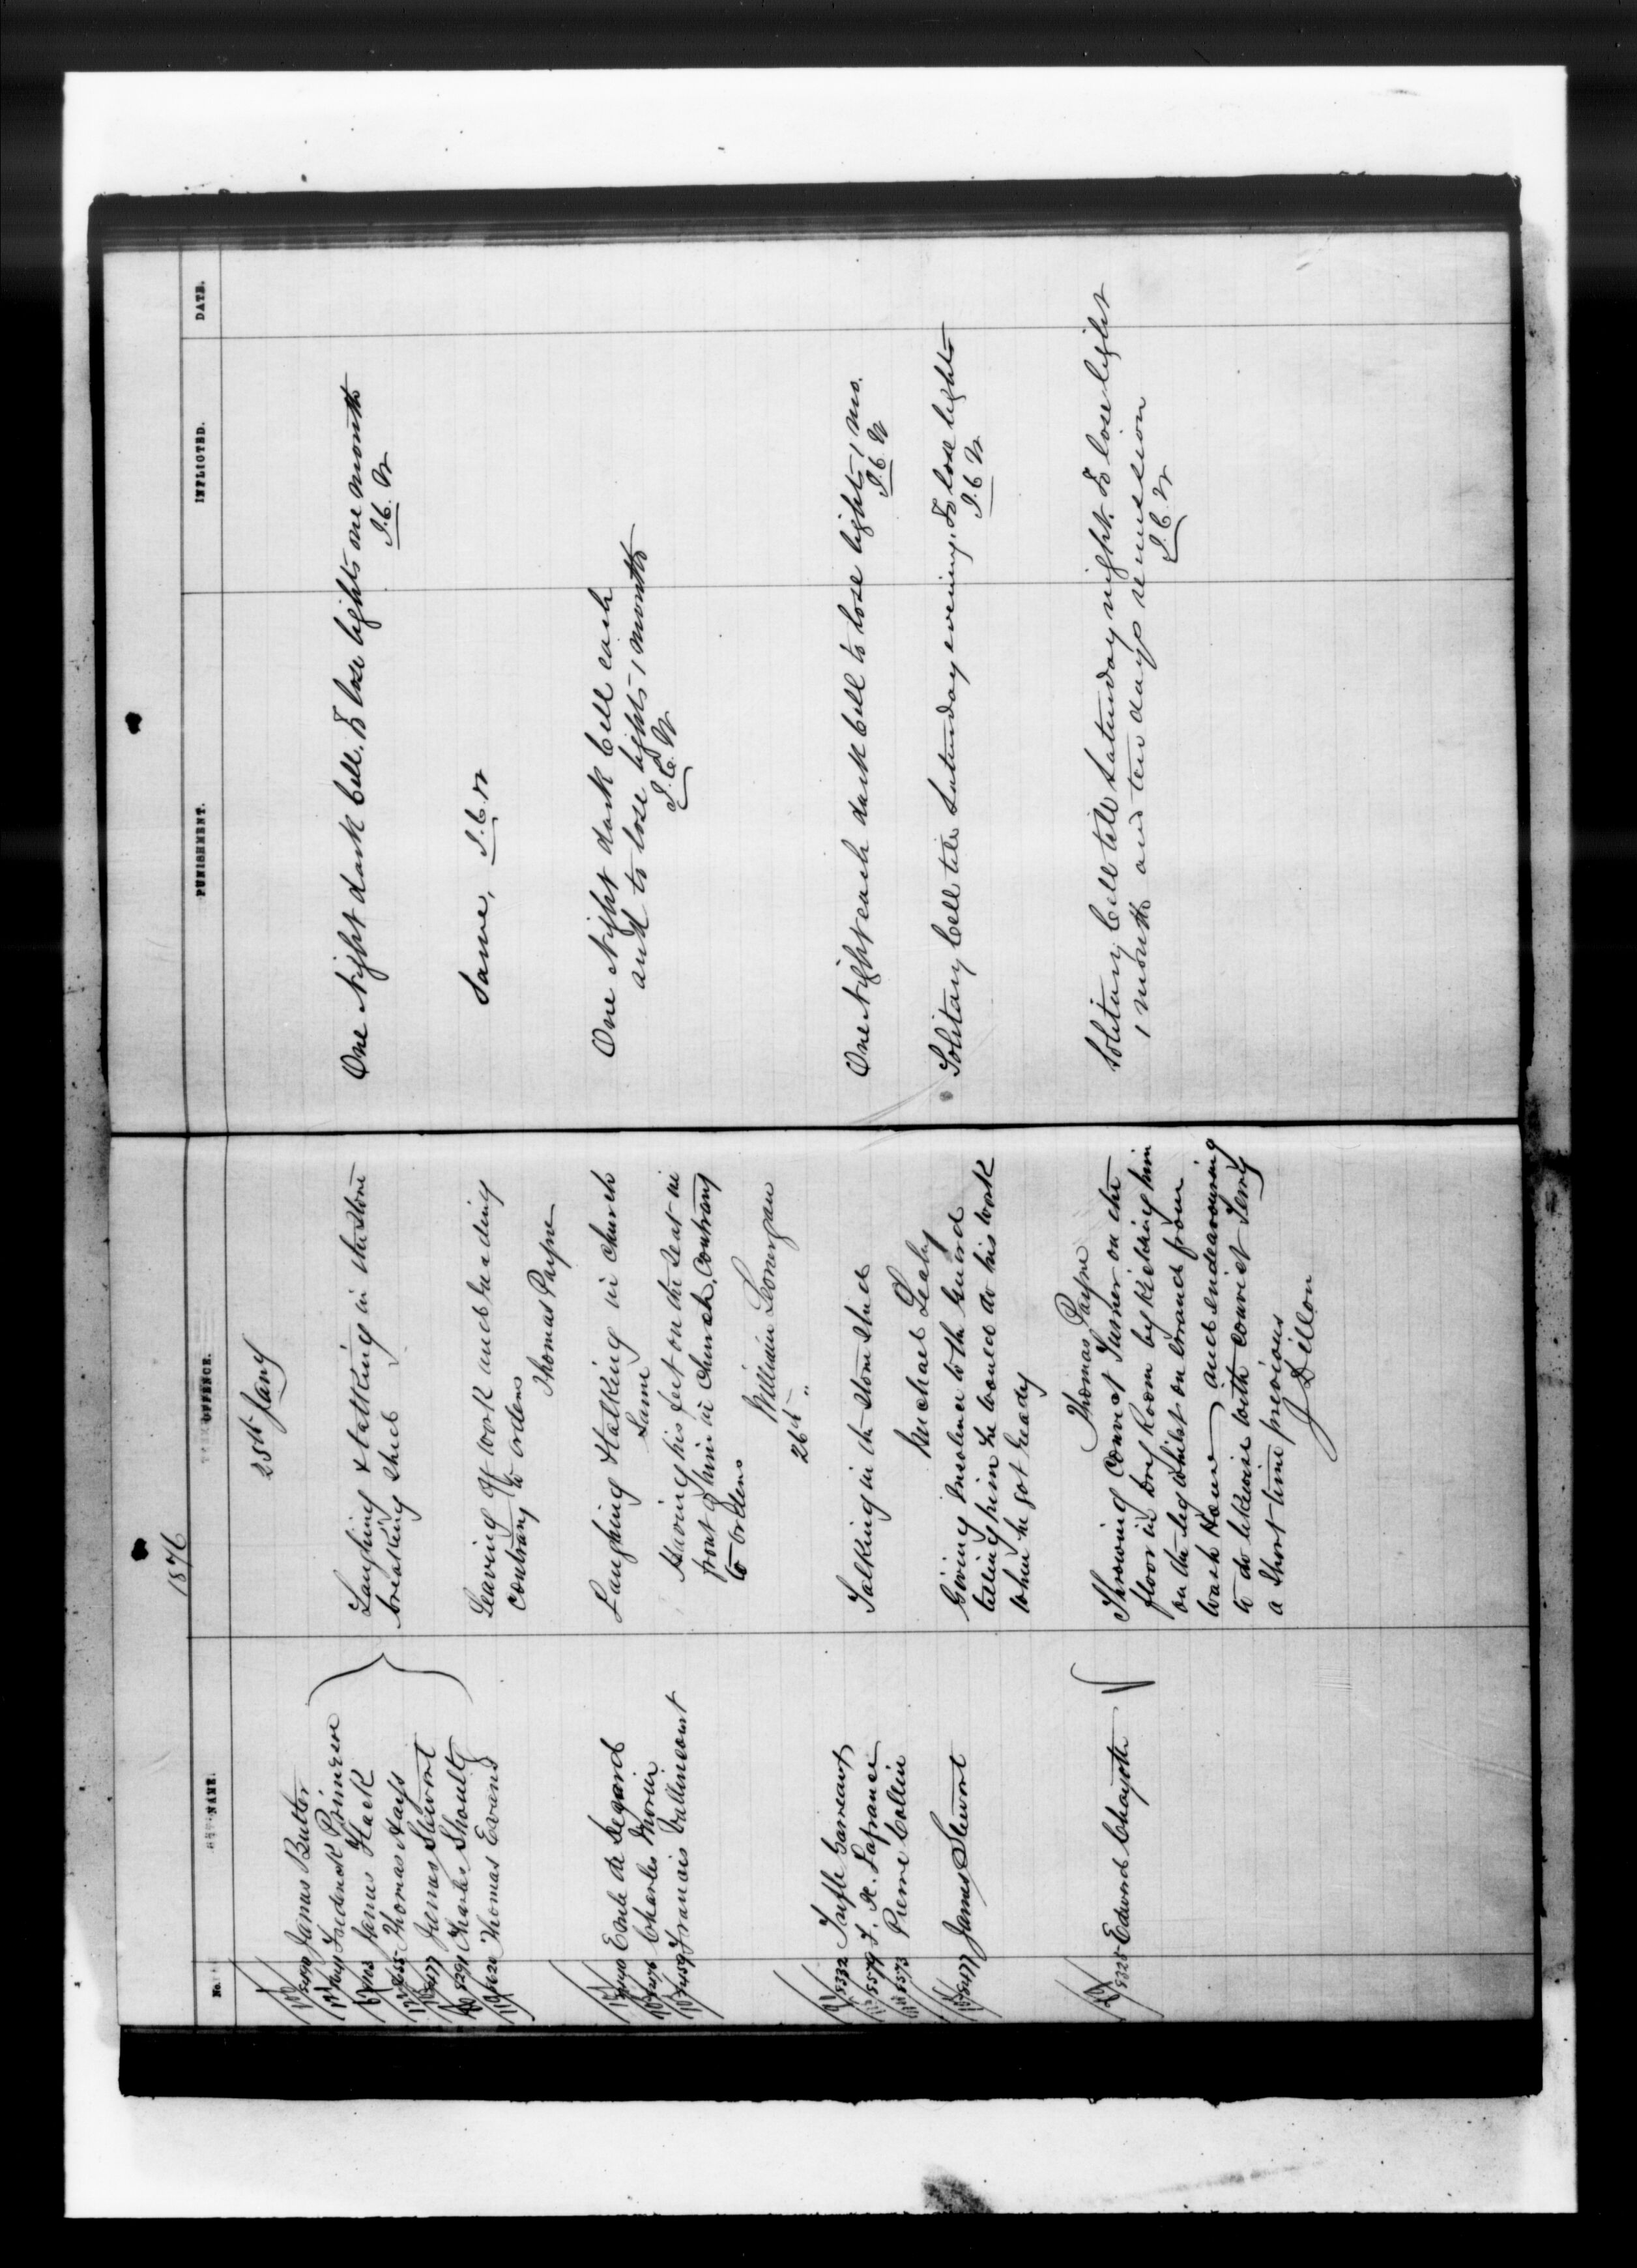 1876
No.
NAME.
OFFENCE.
PUNISHMENT.
INFLICTED.
DATE.
25th Jany
James Butler
Frederick Primrose
James Flack
Thomas Hays
5477 James Stewart
5291 Charles Shoults
Thomas Evans
Laughing & talking in the stone
breaking shed
One Night dark Cell. To lose lights one month
J.C.W
Leaving off work and reading
Contrary to orders
Thomas Payne
Same, J.C.W
Emile de Legard
Charles Morin
5459 Francois Vallincourt
Laughing & talking in church
Same
Having his feet on the seat in
front of him in Church, Contrary
to orders
William Lonergan
One Night dark Cell each
and to lose lights 1 month
J.C.W
26th "
5332 Treffle Garneau
5579 F. X. Lafrance
5573 Pierre Collin
Talking in the Stone Shed
Michael Leahy
One Night each dark Cell to lose lights 1 mo.
J.C.W
5477 James Stewart
Giving insolence to the Guard
telling him he would do his work
when he got ready
Thomas Payne
Solitary Cell till Saturday evening. To lose lights
J.C.W
5325 Edward Chayotte
Throwing Convict Turner on the
floor in Dry Room by Kicking him
on the leg whilst on errand from
Wash House and endeavouring
to do likewise with convict Terry
a short time previous
J Dillon
Solitary Cell till Saturday night. To lose light
1 month and ten days remission
J.C.W